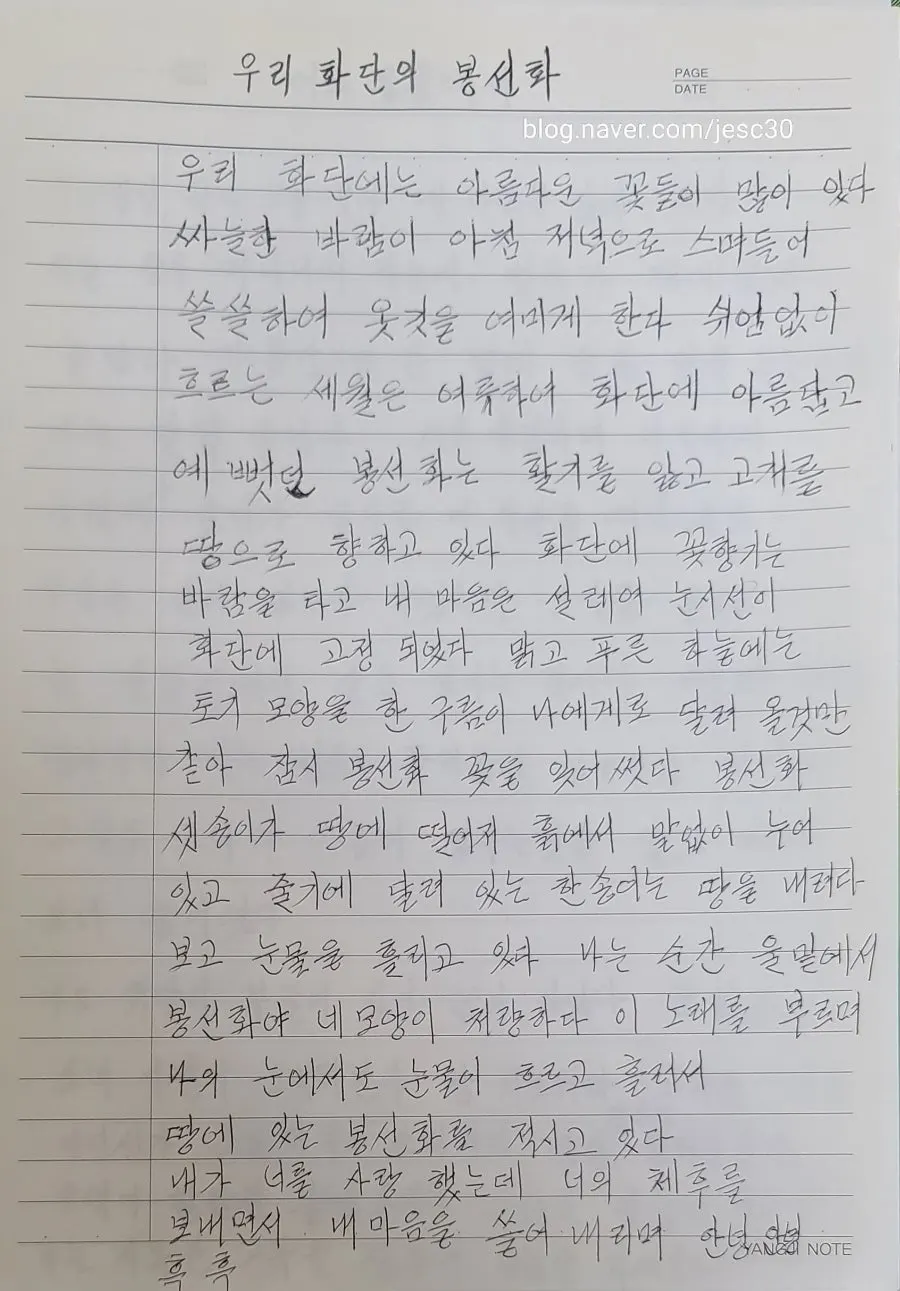 우리 화단의 봉선화
PAGE
DATE
blog.naver.com/jesc30
우리 화단에는 아름다운 꽃들이 많이 있다
싸늘한 바람이 아침 저녁으로 스며들어
쓸쓸하여 옷깃을 여미게 한다 쉬엄없이
흐르는 세월은 여류하여 화단에 아름답고
예뻣던 봉선화는 활기를 잃고 고개를
땅으로 향하고 있다 화단에 꽃향기는
바람을 타고 내 마음은 설레여 눈시선이
화단에 고정 되있다 맑고 푸른 하늘에는
토끼 모양을 한 구름이 나에게로 달려 올것만
같아 잠시 봉선화 꽃을 잊어썼다 봉선화
셋송이가 땅에 떨어져 흙에서 말없이 누어
있고 줄기에 달려 있는 한송이는 땅을 내려다
보고 눈물을 흘리고 있다 나는 순간 울밑에서
봉선화야 네모양이 처량하다 이 노래를 부르며
나의 눈에서도 눈물이 흐르고 흘러서
땅에 있는 봉선화를 적시고 있다
내가 너를 사랑 했는데 너의 체후를
보내면서 내마음을 쓸어내리며 안녕 안녕
흑 흑
YANGJI NOTE